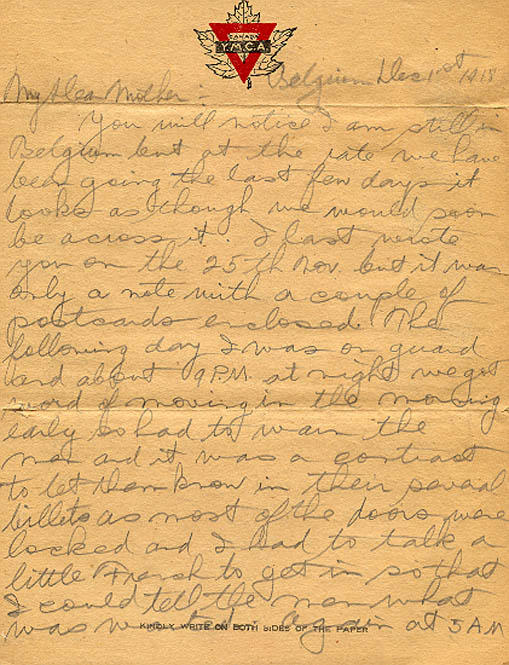 CANADA
Y.M.C.A.
Belgium Dec 1st 1918
My Dear Mother:
You will notice I am still in
Belgium but at the rate we have
been going the last few days it
looks as though we would soon
be across it. I last wrote
you on the 25th Nov. but it was
only a note with a couple of
postcards enclosed. The
following day I was on guard
and about 9 P.M. at night we got
word of moving in the morning
early so had to warn the
men and it was a contract
to let them know in their several
billets as most of the doors were
locked and I had to talk a
little French to get in so that
I could tell the men what
was again at 5 AM
KINDLY WRITE ON BOTH SIDES OF THE PAPER